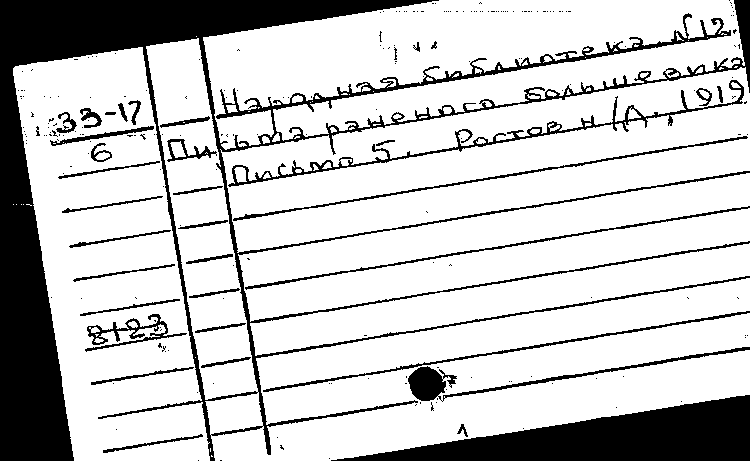 Народная библиотека N12.
33-17
6
Письма раненого большевика
Письмо 5. Ростов н/Д., 1919
8123